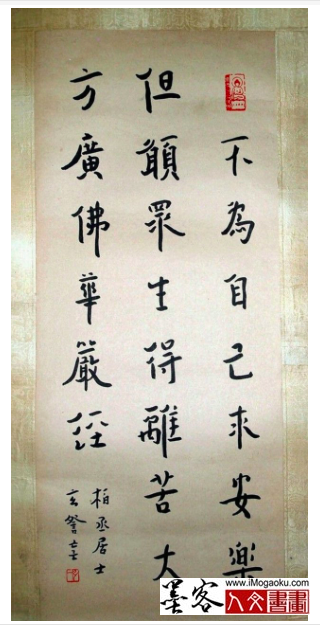 不為自己求安樂
但願眾生得離苦大
方廣佛華嚴經
柏丞居士
玄詧
www.iMogaoku.com
墨客 人文書畫